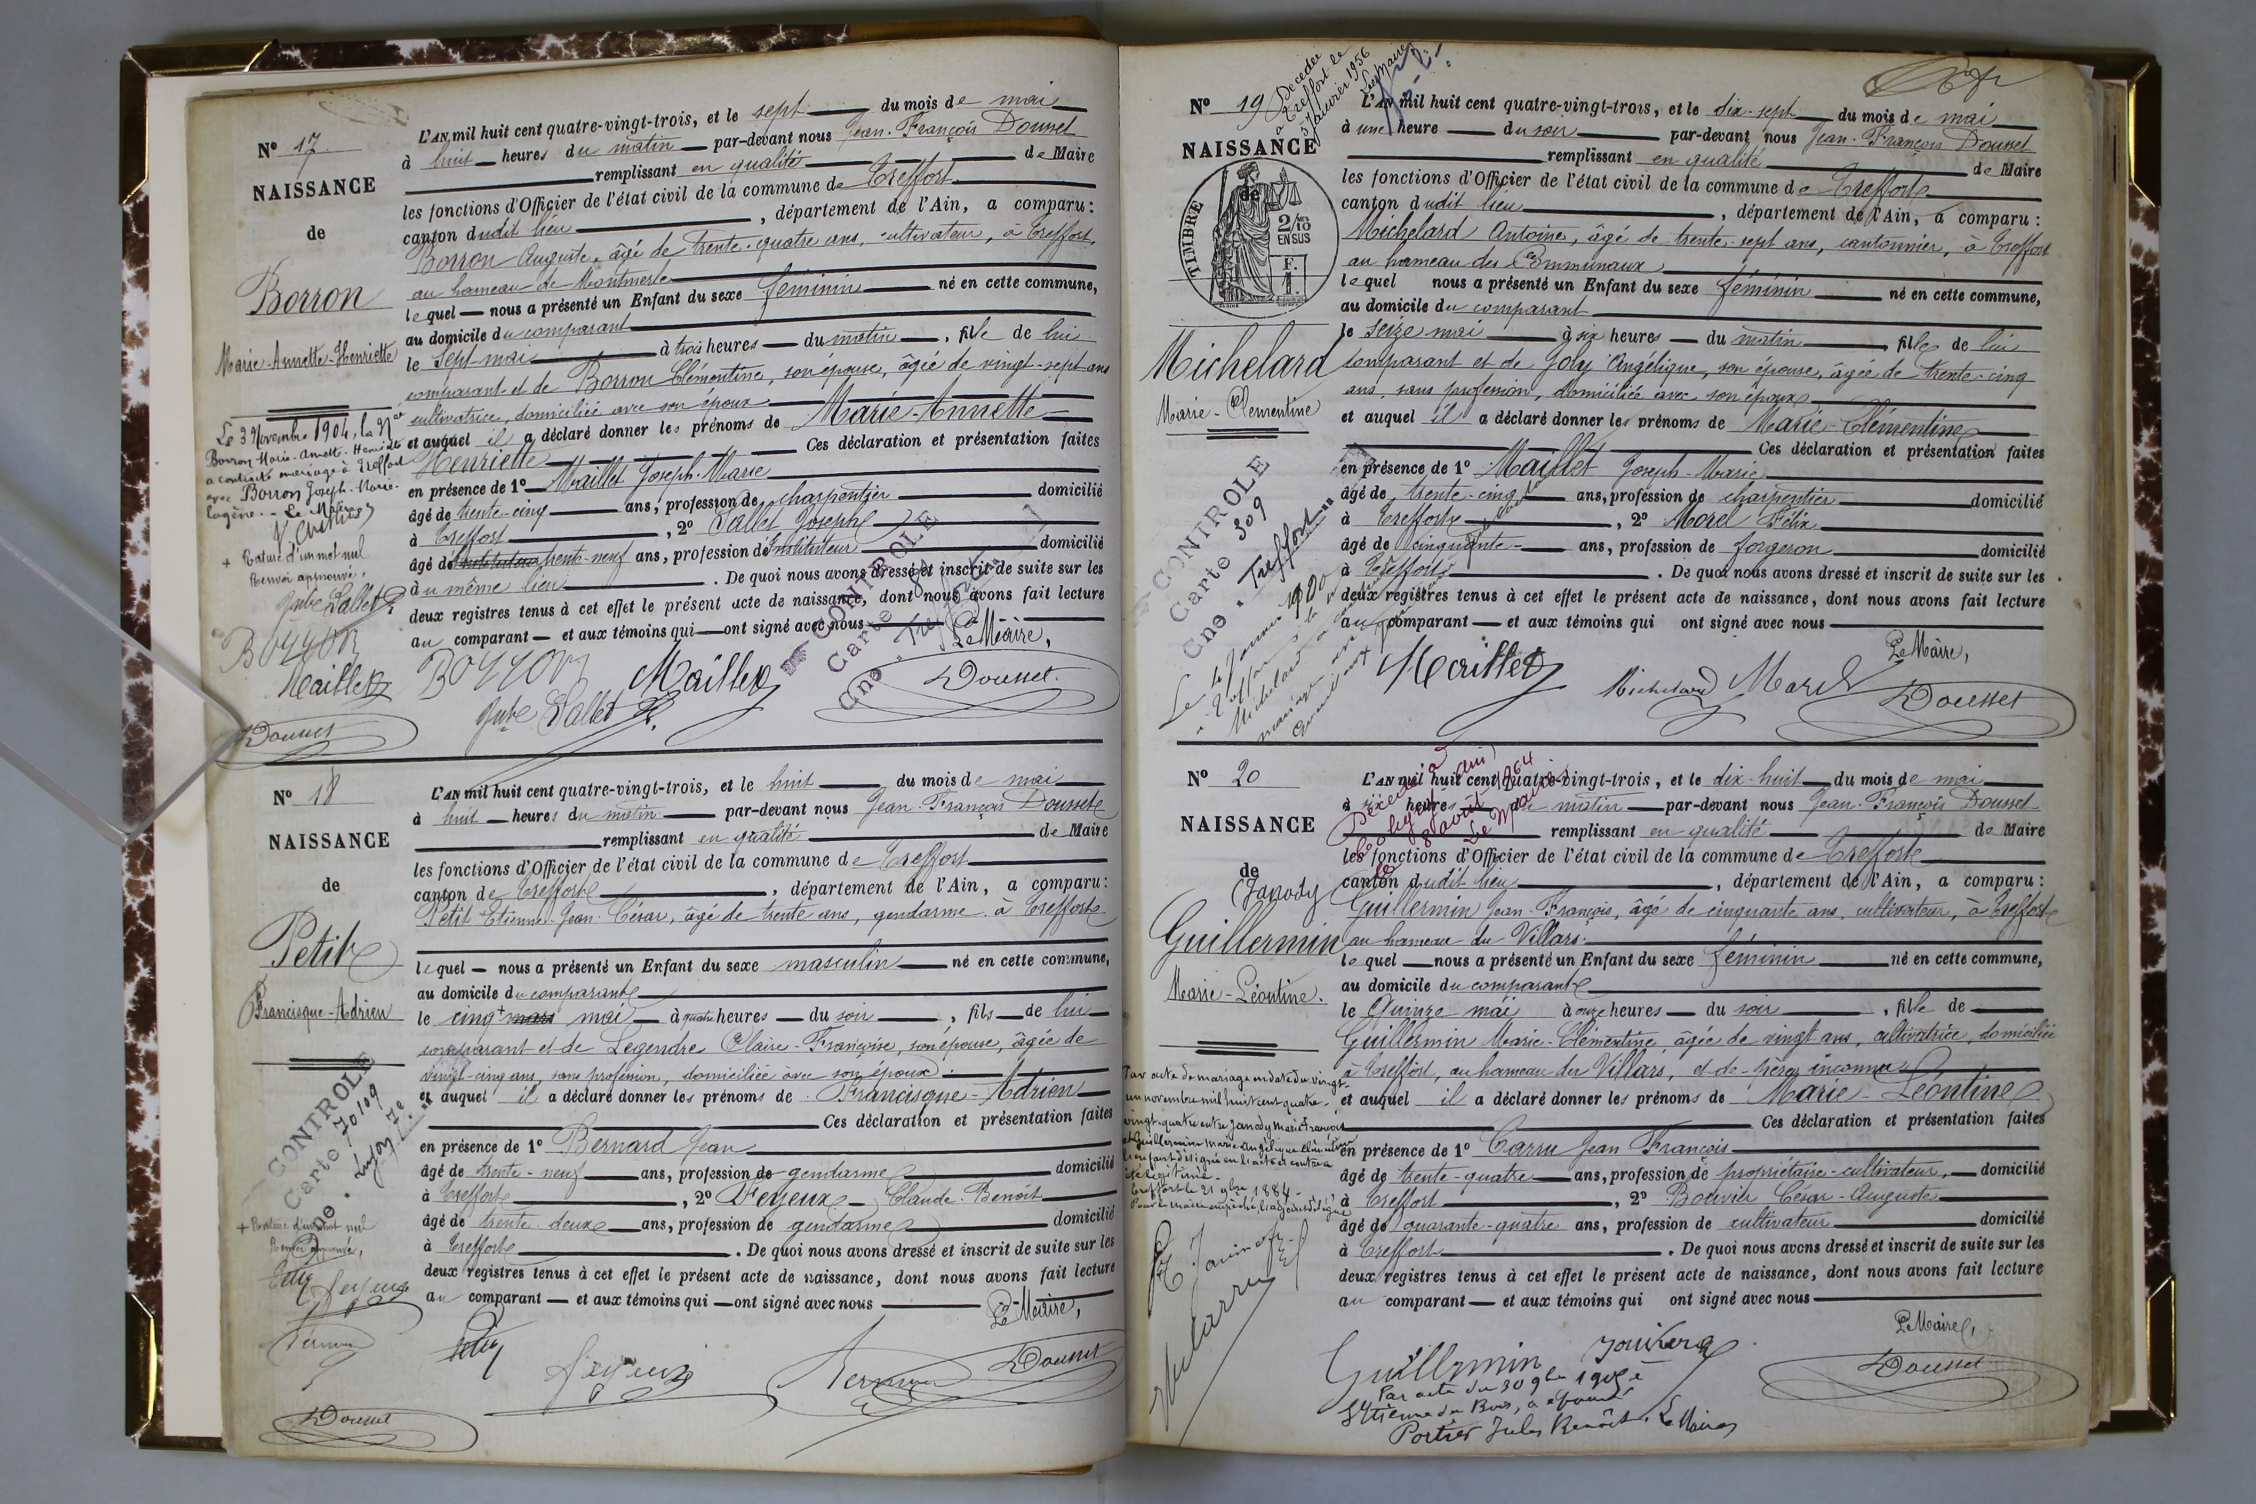 N° 17
NAISSANCE
de
Borron
Marie-Annette-Henriette
Le 3 Novembre 1904, la
Borron Marie-Annette-Henriette
a contracté mariage à Treffort
avec Borron Joseph-Marie-
Eugène. - Le Maire
+ Rature d'un mot nul
Renvoi approuvé.
Borron
Maillet
Dousset
L'AN mil huit cent quatre-vingt-trois, et le sept du mois de mai
à huit heures du matin par-devant nous Jean-François Dousset
remplissant en qualité de Maire
les fonctions d'Officier de l'état civil de la commune de Treffort
canton dudit lieu, département de l'Ain, a comparu:
Borron Auguste, âgé de trente-quatre ans, cultivateur, à Treffort,
au hameau de Montmerle
lequel nous a présenté un Enfant du sexe féminin né en cette commune,
au domicile du comparant
le sept mai à trois heures du matin, fille de lui
comparant et de Borron Clémentine, son épouse, âgée de vingt-sept ans
cultivatrice, domiciliée avec son époux
et auquel il a déclaré donner les prénoms de Marie-Annette-
Henriette Ces déclaration et présentation faites
en présence de 1° Maillet Joseph-Marie
âgé de trente-cinq ans, profession de charpentier domicilié
à Treffort, 2° Lallet Joseph
âgé de trente-neuf ans, profession d'Instituteur domicilié
au même lieu. De quoi nous avons dressé et inscrit de suite sur les
deux registres tenus à cet effet le présent acte de naissance, dont nous avons fait lecture
au comparant et aux témoins qui ont signé avec nous
Le Maire,
CONTROLE
Carte 84
Cne. Treffort
Borron
Maillet
Lallet
Dousset
N° 18
NAISSANCE
de
Petit
Francisque-Adrien
CONTROLE
Carte 70109
Cne. Lyon 7e
+ Rature d'un mot nul
Renvoi approuvé,
Petit
Feyeux
Bernard
Dousset
L'AN mil huit cent quatre-vingt-trois, et le huit du mois de mai
à huit heures du matin par-devant nous Jean-François Dousset
remplissant en qualité de Maire
les fonctions d'Officier de l'état civil de la commune de Treffort
canton de Treffort, département de l'Ain, a comparu:
Petit Etienne-Jean-César, âgé de trente ans, gendarme à Treffort
lequel nous a présenté un Enfant du sexe masculin né en cette commune,
au domicile du comparant
le cinq + mars mai à quatre heures du soir, fils de lui
comparant et de Legendre Claire-Françoise, son épouse, âgée de
vingt-cinq ans, sans profession, domiciliée avec son époux
et auquel il a déclaré donner les prénoms de Francisque-Adrien
Ces déclaration et présentation faites
en présence de 1° Bernard Jean
âgé de trente-neuf ans, profession de gendarme domicilié
à Treffort, 2° Feyeux Claude-Benoît
âgé de trente-deux ans, profession de gendarme domicilié
à Treffort. De quoi nous avons dressé et inscrit de suite sur les
deux registres tenus à cet effet le présent acte de naissance, dont nous avons fait lecture
au comparant et aux témoins qui ont signé avec nous
Le Maire,
Petit
Feyeux
Bernard
Dousset
N° 19
Décédée
à Treffort le
5 Janvier 1956
Le Maire
NAISSANCE
de
TIMBRE
2/10
EN SUS
F.
1.
Michelard
Marie-Clémentine
CONTROLE
Carte 309
Cne. Treffort
L'AN mil huit cent quatre-vingt-trois, et le dix-sept du mois de mai
à une heure du soir par-devant nous Jean-François Dousset
remplissant en qualité de Maire
les fonctions d'Officier de l'état civil de la commune de Treffort
canton dudit lieu, département de l'Ain, a comparu:
Michelard Antoine, âgé de trente-sept ans, cantonnier, à Treffort
au hameau des Communaux
lequel nous a présenté un Enfant du sexe féminin né en cette commune,
au domicile du comparant
le seize mai à six heures du matin, fille de lui
comparant et de Joly Angélique, son épouse, âgée de trente-cinq
ans, sans profession, domiciliée avec son époux
et auquel il a déclaré donner les prénoms de Marie-Clémentine
Ces déclaration et présentation faites
en présence de 1° Maillet Joseph-Marie
âgé de trente-cinq ans, profession de charpentier domicilié
à Treffort, 2° Morel Félix
âgé de cinquante- ans, profession de forgeron domicilié
à Treffort. De quoi nous avons dressé et inscrit de suite sur les
deux registres tenus à cet effet le présent acte de naissance, dont nous avons fait lecture
au comparant et aux témoins qui ont signé avec nous
Le Maire,
Maillet
Michelard
Morel
Dousset
N° 20
NAISSANCE
de
Janody
Guillermin
Marie-Léontine.
Par acte de mariage en date du vingt-
un novembre mil huit cent quatre-
vingt-quatre entre Janody Marie François
et Guillermin Marie Angélique Clémentine
Treffort le 21 9bre 1884
L'AN mil huit cent quatre-vingt-trois, et le dix-huit du mois de mai
à heures du matin par-devant nous Jean-François Dousset
remplissant en qualité de Maire
les fonctions d'Officier de l'état civil de la commune de Treffort
canton dudit lieu, département de l'Ain, a comparu:
Guillermin Jean-François, âgé de cinquante ans, cultivateur, à Treffort
au hameau du Villars.
lequel nous a présenté un Enfant du sexe féminin né en cette commune,
au domicile du comparant
le Quinze mai à onze heures du soir, fille de
Guillermin Marie-Clémentine, âgée de vingt ans, cultivatrice, domiciliée
à Treffort, au hameau du Villars, et de père inconnu
et auquel il a déclaré donner les prénoms de Marie-Léontine
Ces déclaration et présentation faites
en présence de 1° Carru Jean François
âgé de trente-quatre ans, profession de propriétaire-cultivateur, domicilié
à Treffort, 2° Bouvier César-Auguste
âgé de quarante-quatre ans, profession de cultivateur domicilié
à Treffort. De quoi nous avons dressé et inscrit de suite sur les
deux registres tenus à cet effet le présent acte de naissance, dont nous avons fait lecture
au comparant et aux témoins qui ont signé avec nous
Le Maire,
Guillermin
Dousset
Par acte du 30 9bre
St Etienne du Bois, a épousé
Portier Jules Benoît. Le Maire